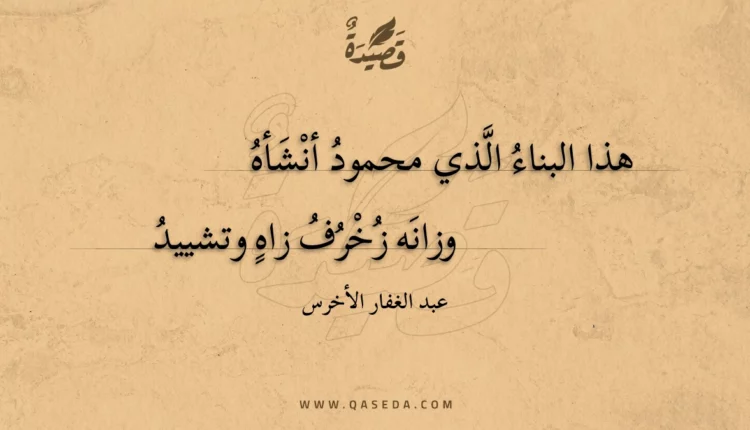 قَصِيْدَةٌ
هذا البناءُ الَّذي محمودُ أنْشَأهُ
وزانَه زُخْرُفُ زاهٍ وتشييدُ
عبد الغفار الأخرس
WWW.QASEDA.COM